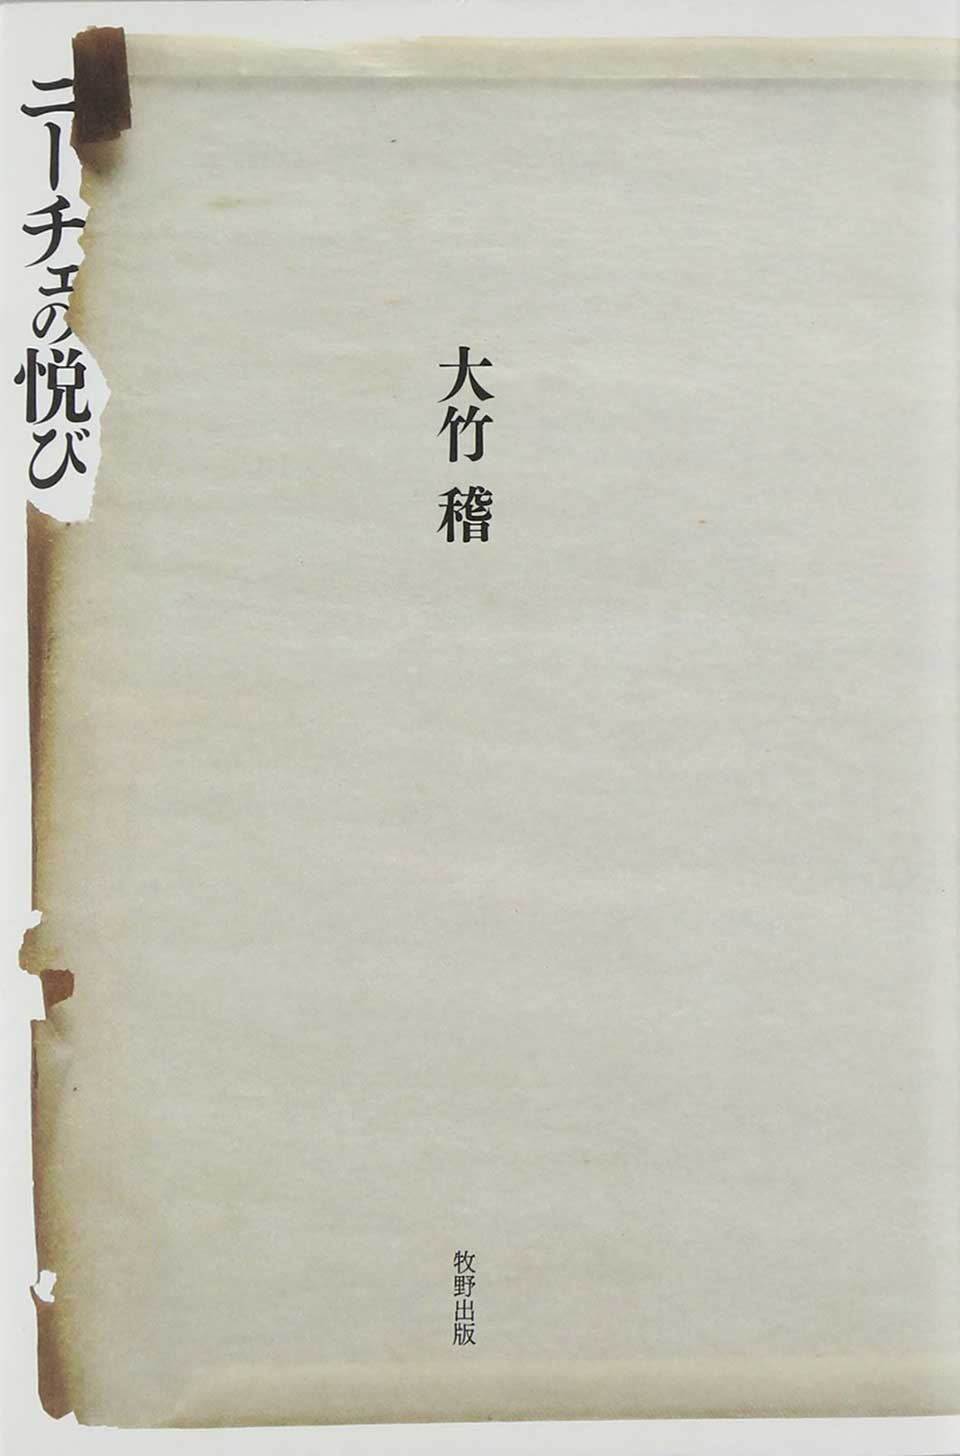 ニーチェの悦び
大竹 稽
牧野出版